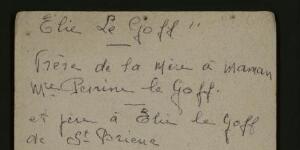 Elie Le Goff "
Frère de la Mère à maman
Mme Perrine le Goff.
et père à Elie le Goff
de St Brieuc